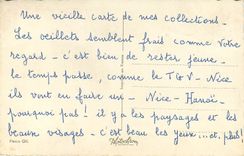 Une vieille carte de mes collections.
Les œillets semblent frais comme votre
regard - c'est bien de rester jeune -
le temps passe, comme le TGV - Nice
ils vont en faire un - Nice - Hanoï -
pourquoi pas ! il y a les paysages et les
beaux visages - c'est beau les yeux... et plus !